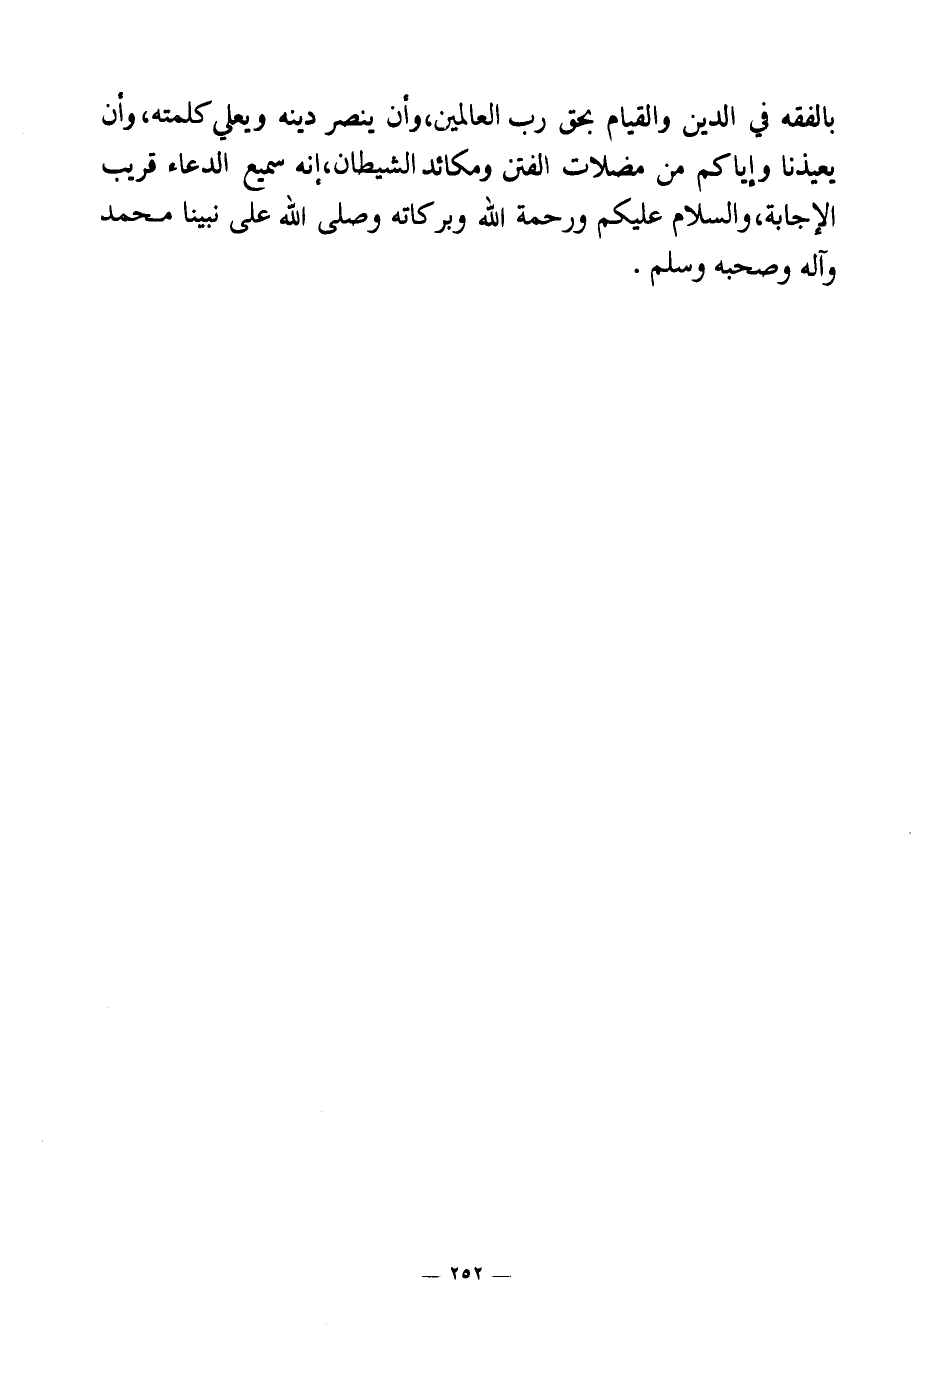 بالفقه في الدين والقيام بحق رب العالمين،وأن ينصر دينه ويعلي كلمته،وأن
يعيذنا وإياكم من مضلات الفتن ومكائد الشيطان،إنه سميع الدعاء قريب
الإجابة،والسلام عليكم ورحمة الله وبركاته وصلى الله على نبينا محمد
وآله وصحبه وسلم .
— ٢٥٢ —